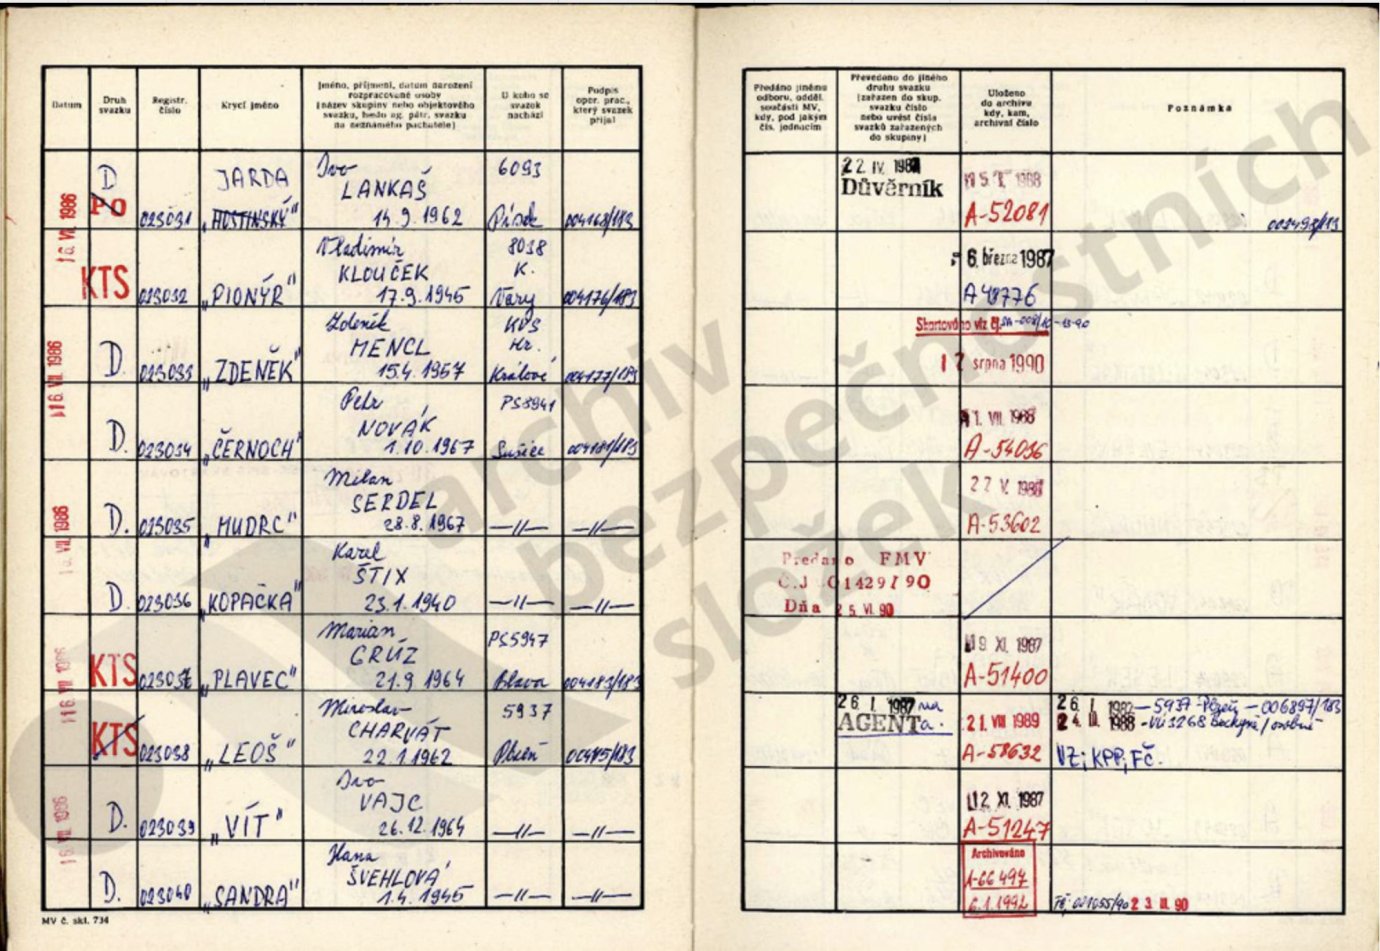 Datum
Druh svazku
Registr. číslo
Krycí jméno
Jméno, příjmení, datum narození
rozpracované osoby
(název skupiny nebo objektového
svazku, heslo ag. pátr. svazku
na neznámého pachatele)
U koho se
svazek
nachází
Podpis
oper. prac.,
který svazek
přijal
Předáno jinému
odboru, odděl.
součásti MV,
kdy, pod jakým
čís. jednacím
Převedeno do jiného
druhu svazku
(zařazen do skup.
svazku číslo
nebo uvést čísla
svazků zařazených
do skupiny)
Uloženo
do archivu
kdy, kam,
archivní číslo
Poznámka
D
PO
023031
JARDA
„HOSTINSKÝ"
Ivo
LANKAŠ
14.9.1962
6093
Písek
004168/183
22. IV. 1987
Důvěrník
1988
A-52081
002498/183
16. VII. 1986
KTS
023032
„PIONÝR"
Vladimír
KLOUČEK
17.9.1945
8038
K.
Vary
004176/183
6. března 1987
A 48776
16. VII. 1986
D.
023033
„ZDENĚK"
Zdeněk
MENCL
15.4.1957
KVS
Hr.
Králové
004177/183
Skartováno viz čj.
17 srpna 1990
D.
023034
„ČERNOCH"
Petr
NOVÁK
1.10.1967
PS5941
Sušice
004181/183
1. VII. 1988
A-54036
VII. 1986
D.
023035
„MUDRC"
Milan
SERDEL
28.8.1967
—//—
—//—
22 V. 1988
A-53602
D.
023036
„KOPAČKA"
Karel
ŠTIX
23.1.1940
—//—
—//—
Předáno FMV
Č.J. 01429/90
Dňa 25. VI. 90
16. VII. 1986
KTS
023037
„PLAVEC"
Marian
GRÚZ
21.9.1964
PS5947
Blava
004183/183
9. XI. 1987
A-51400
KTS
023038
„LEOŠ"
Miroslav
CHARVÁT
22.1.1962
5937
Plzeň
26. I. 1987 na
AGENTa.
21. VIII 1989
A-58632
26. I 1982 — 5937 Plzeň — 006897/183
24. III. 1988 - VÚ 3268 Bechyně/osobně
VZ; KPP; FČ.
16. VII. 1986
D.
023039
„VÍT"
Ivo
VAJC
26.12.1964
—//—
—//—
12. XI. 1987
A-51247
D.
023040
„SANDRA"
Hana
ŠVEHLOVÁ
1.4.1945
—//—
—//—
Archivováno
1-66497
6.1.1992
021055/90 23. III. 90
MV č. skl. 734
archiv
bezpečnostních
složek